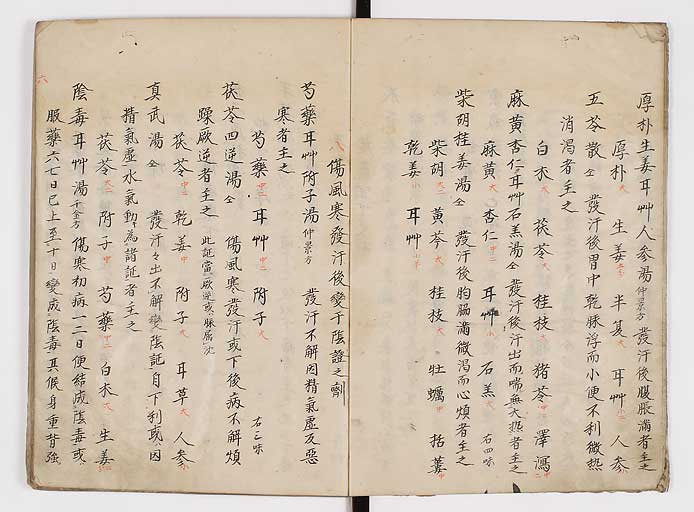 厚朴生姜耳艸人参湯 仲景方 發汗後腹脹滿者主之
厚朴大 生姜大 半夏大 耳艸小二 人参小
五苓散仝 發汗後胃中乾脉浮而小便不利微熱
消渇者主之
白朮大 茯苓大 桂枝大 猪苓中 澤瀉中
麻黄杏仁耳艸石羔湯仝 發汗後汗出而喘無大热者主之
麻黄大 杏仁中二 耳艸小 石羔大 右四味
柴胡桂姜湯仝 發汗後胸脇滿微渇而心煩者主之
柴胡大二 黄芩大 桂枝大 牡蠣中 括蔞中
乾姜小 耳艸小
八 傷風寒發汗後變于陰證之劑
芍藥耳艸附子湯 仲景方 發汗不解因精氣虚反惡
寒者主之
芍藥中二 耳艸中二 附子大 右三味
茯苓四逆湯仝 傷風寒發汗或下後病不解煩
躁厥逆者主之 此証當厥逆或脉
茯苓中二 乾姜中 附子大 耳草大 人参中
真武湯仝 發汗々出不解變陰証自下利或因
精氣虚水氣動為諸証者主之
茯苓大二 附子中 芍藥中二 白朮大 生姜
陰毒耳艸湯 千金方 傷寒初病一二日便結成陰毒或
服藥六七日已上至十日變成陰毒其候身重背強
六